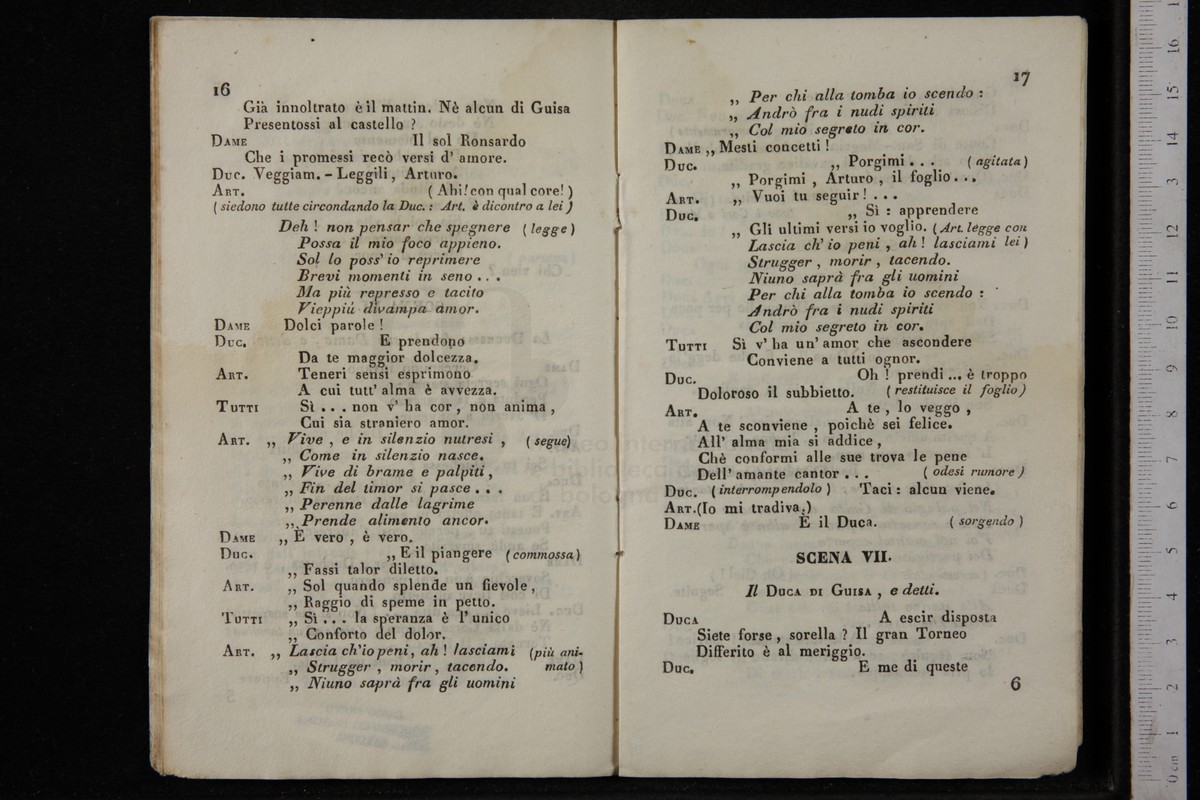 16
Già innoltrato è il mattin. Nè alcun di Guisa
Presentossi al castello ?
DAME Il sol Ronsardo
Che i promessi recò versi d' amore.
DUC. Veggiam. - Leggili, Arturo.
ART. ( Ahi! con qual core! )
( siedono tutte circondando la Duc. : Art. è dicontro a lei )
Deh ! non pensar che spegnere ( legge )
Possa il mio foco appieno.
Sol lo poss' io reprimere
Brevi momenti in seno . . .
Ma più represso e tacito
Vieppiù divampa amor.
DAME Dolci parole !
DUC. E prendono
Da te maggior dolcezza.
ART. Teneri sensi esprimono
A cui tutt' alma è avvezza.
TUTTI Sì . . . non v' ha cor , non anima ,
Cui sia straniero amor.
ART. ,, Vive , e in silenzio nutresi , ( segue)
,, Come in silenzio nasce.
,, Vive di brame e palpiti,
,, Fin del timor si pasce . . .
,, Perenne dalle lagrime
,, Prende alimento ancor.
DAME ,, È vero , è vero.
DUC. ,, E il piangere (commossa)
,, Fassi talor diletto.
ART. ,, Sol quando splende un fievole,
,, Raggio di speme in petto.
TUTTI ,, Sì . . . la speranza è l' unico
,, Conforto del dolor.
ART. ,, Lascia ch'io peni, ah ! lasciami (più ani-
,, Strugger , morir , tacendo. mato )
,, Niuno saprà fra gli uomini
17
,, Per chi alla tomba io scendo :
,, Andrò fra i nudi spiriti
,, Col mio segreto in cor.
DAME ,, Mesti concetti !
DUC. ,, Porgimi . . . ( agitata )
,, Porgimi , Arturo , il foglio . . .
ART. ,, Vuoi tu seguir ! . . .
DUC. ,, Sì : apprendere
,, Gli ultimi versi io voglio. (Art. legge con
Lascia ch' io peni , ah ! lasciami lei )
Strugger , morir , tacendo.
Niuno saprà fra gli uomini
Per chi alla tomba io scendo :
Andrò fra i nudi spiriti
Col mio segreto in cor.
TUTTI Sì v' ha un' amor che ascondere
Conviene a tutti ognor.
DUC. Oh ! prendi ... è troppo
Doloroso il subbietto. ( restituisce il foglio )
ART. A te , lo veggo ,
A te sconviene , poichè sei felice.
All' alma mia si addice ,
Chè conformi alle sue trova le pene
Dell' amante cantor . . . ( odesi rumore )
DUC. ( interrompendolo ) Taci : alcun viene.
ART.(Io mi tradiva.)
DAME È il Duca. ( sorgendo )
SCENA VII.
Il DUCA DI GUISA , e detti.
DUCA A escir disposta
Siete forse , sorella ? Il gran Torneo
Differito è al meriggio.
DUC. E me di queste
6